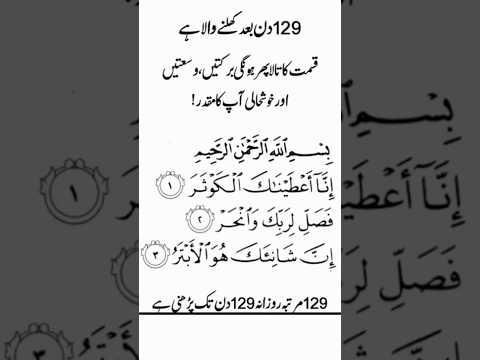 129 دن بعد کھلنے والا ہے
قسمت کا تالا پھر ہونگی برکتیں، وسعتیں
اور خوشحالی آپ کا مقدر!
بِسْمِ اللهِ الرَّحْمٰنِ الرَّحِيمِ
إِنَّآ أَعْطَيْنَٰكَ ٱلْكَوْثَرَ ١
فَصَلِّ لِرَبِّكَ وَٱنْحَرْ ٢
إِنَّ شَانِئَكَ هُوَ ٱلْأَبْتَرُ ٣
129 مرتبہ روزانہ 129 دن تک پڑھنی ہے